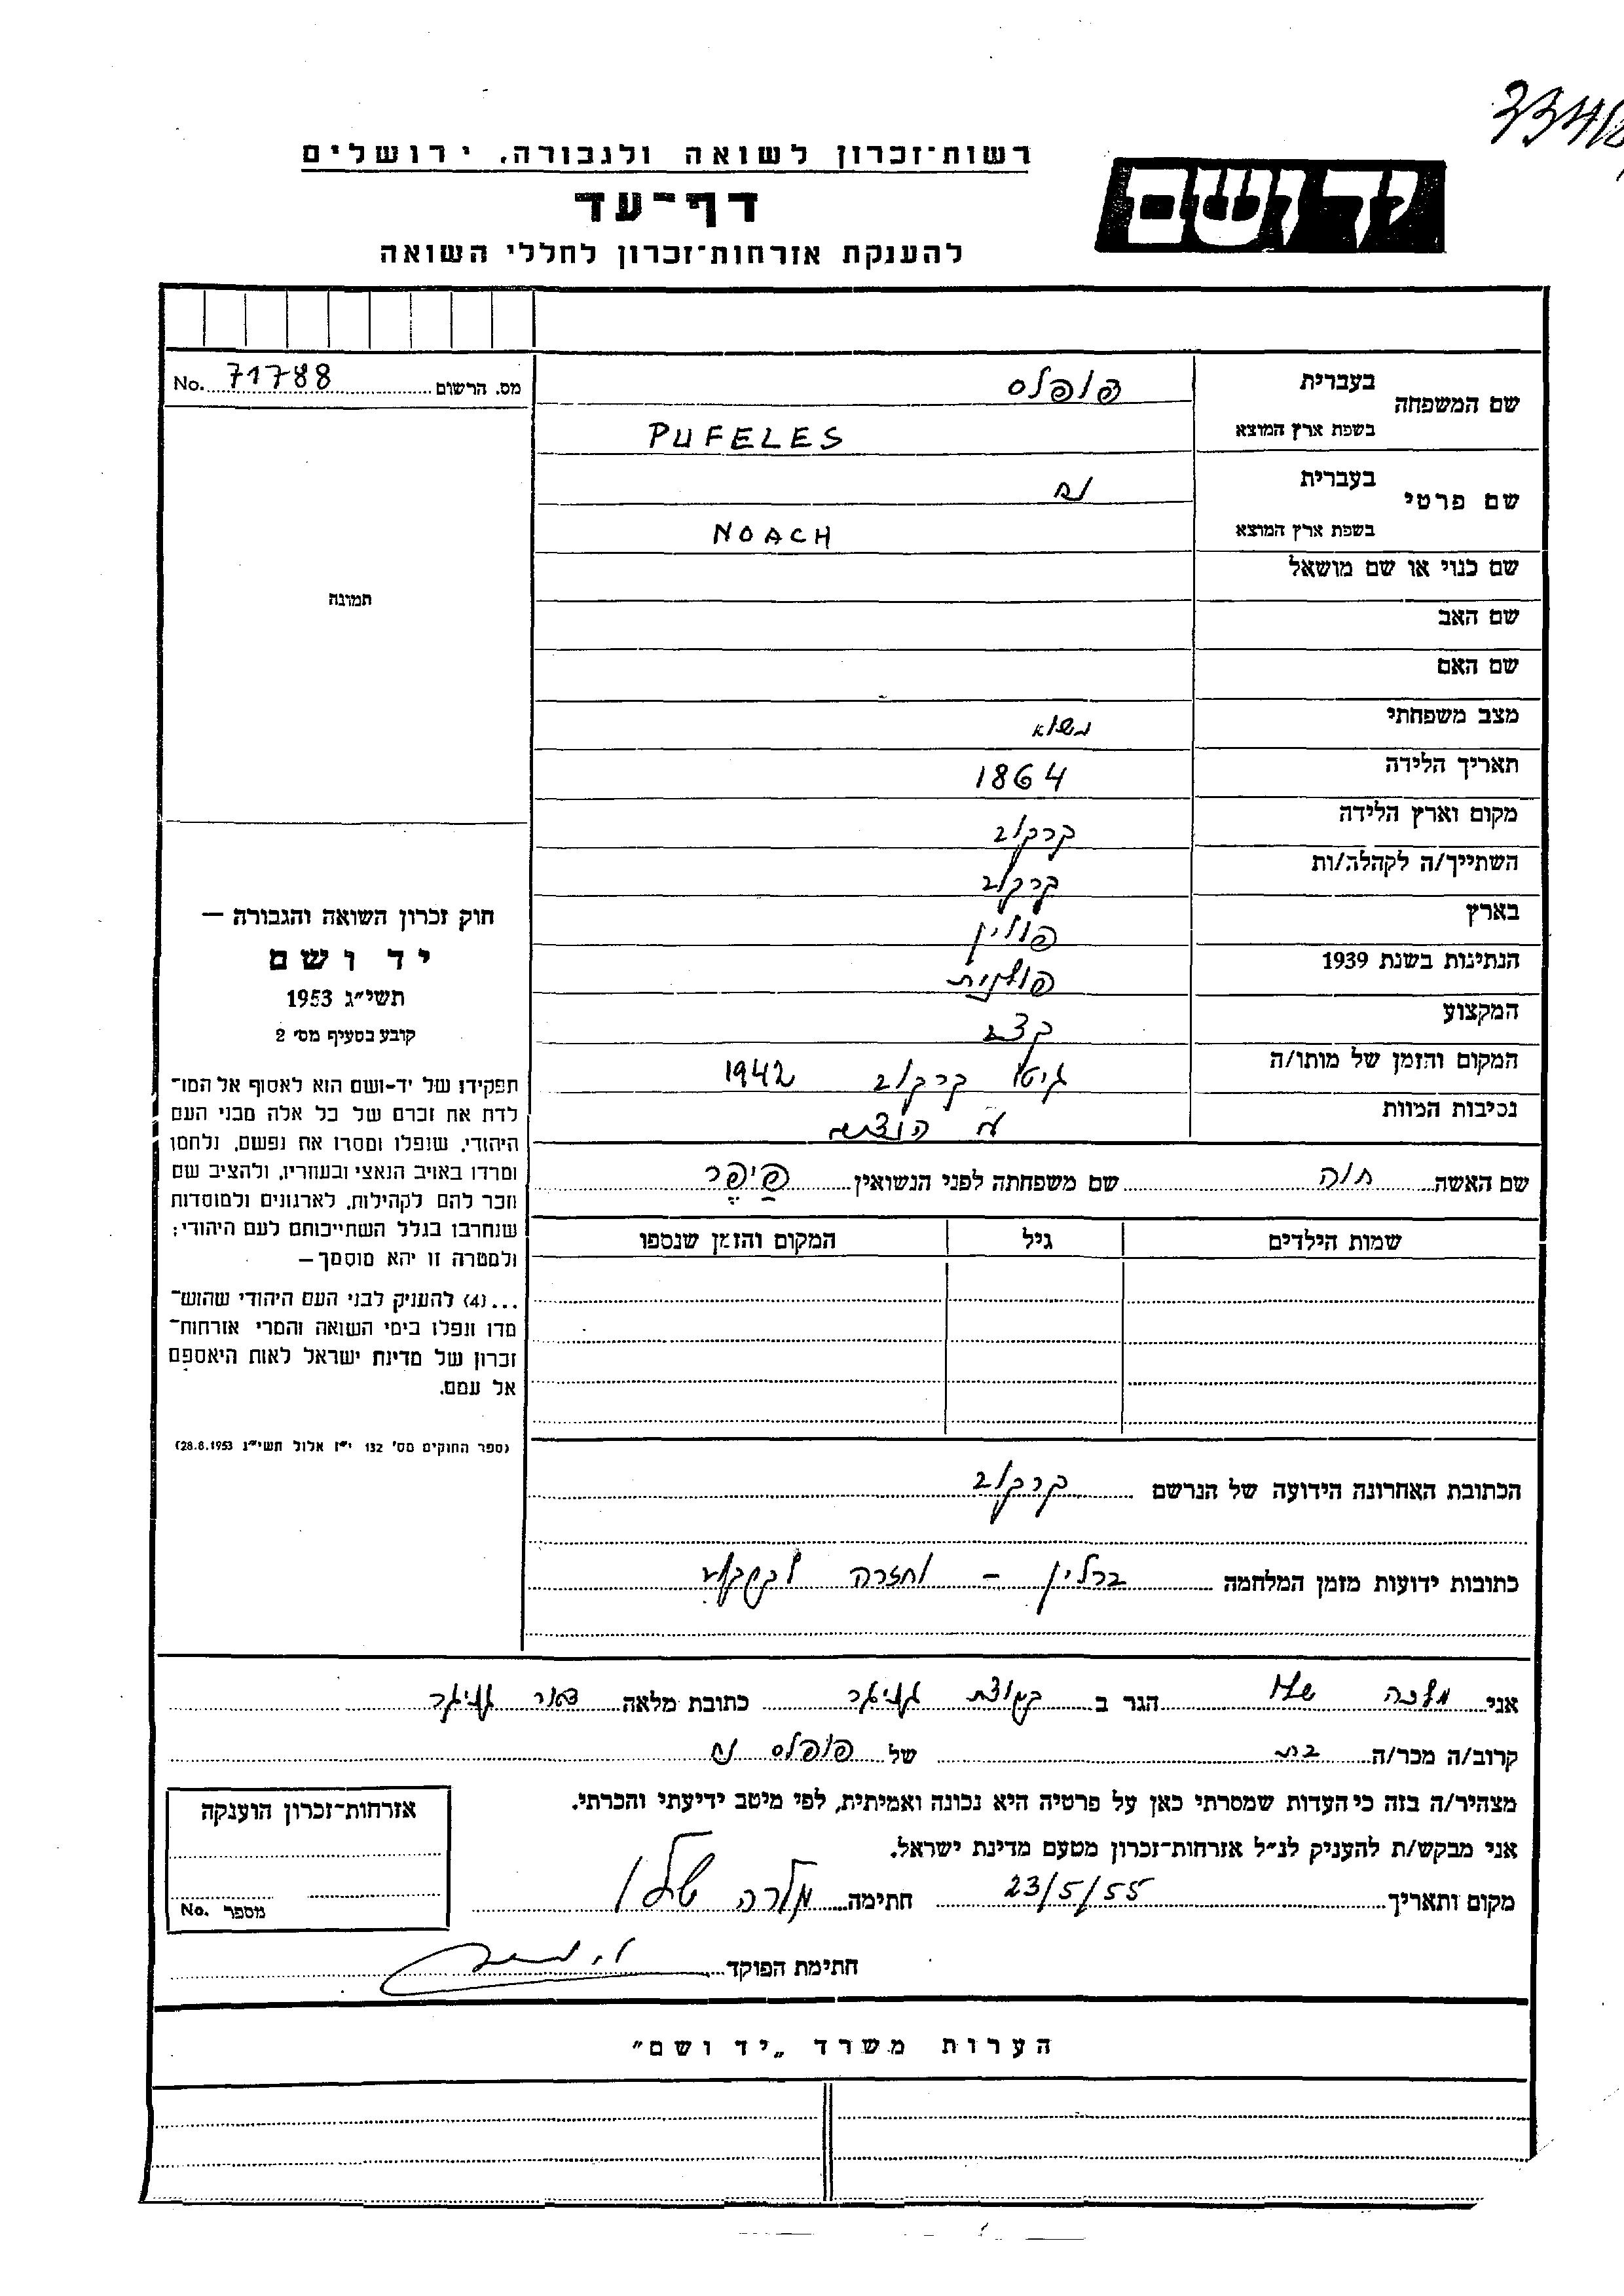 רשות־זכרון לשואה ולגבורה, ירושלים
דף־עד
להענקת אזרחות־זכרון לחללי השואה
יד ושם
מס. הרשום 71788 No.
שם המשפחה
בעברית פופלס
בשפת ארץ המוצא PUFELES
שם פרטי
בעברית נח
בשפת ארץ המוצא NOACH
שם כנוי או שם מושאל
שם האב
שם האם
מצב משפחתי נשוא
תאריך הלידה 1864
מקום וארץ הלידה קרקוב
השתייך/ה לקהלה/ות קרקוב
בארץ פולין
הנתינות בשנת 1939 פולנית
המקצוע קצב
המקום והזמן של מותו/ה גיטו קרקוב 1942
נסיבות המוות
תמונה
חוק זכרון השואה והגבורה —
יד ושם
תשי״ג 1953
קובע בסעיף מס׳ 2
תפקידו של יד-ושם הוא לאסוף אל המו־
לדת את זכרם של כל אלה מבני העם
היהודי, שנפלו ומסרו את נפשם, נלחמו
ומרדו באויב הנאצי ובעוזריו, ולהציב שם
וזכר להם לקהילות, לארגונים ולמוסדות
שנחרבו בגלל השתייכותם לעם היהודי;
ולמטרה זו יהא מוסמך —
...(4) להעניק לבני העם היהודי שהוש־
מדו ונפלו בימי השואה והמרי אזרחות־
זכרון של מדינת ישראל לאות היאספם
אל עמם.
(ספר החוקים מס׳ 132 י״ז אלול תשי״ג 28.8.1953)
שם האשה חוה שם משפחתה לפני הנשואין פײַפֶר
שמות הילדים גיל המקום והזמן שנספו
הכתובת האחרונה הידועה של הנרשם קרקוב
כתובות ידועות מזמן המלחמה ברלין – וחזרה לקרקוב
אני מלכה הגר ב קבוצת גניגר כתובת מלאה דאר גניגר
קרוב/ה מכר/ה בת של פופלס נח
מצהיר/ה בזה כי העדות שמסרתי כאן על פרטיה היא נכונה ואמיתית, לפי מיטב ידיעתי והכרתי.
אני מבקש/ת להעניק לנ״ל אזרחות־זכרון מטעם מדינת ישראל.
מקום ותאריך 23/5/55 חתימה מלכה
חתימת הפוקד
אזרחות־זכרון הוענקה
מספר No.
הערות משרד „יד ושם״